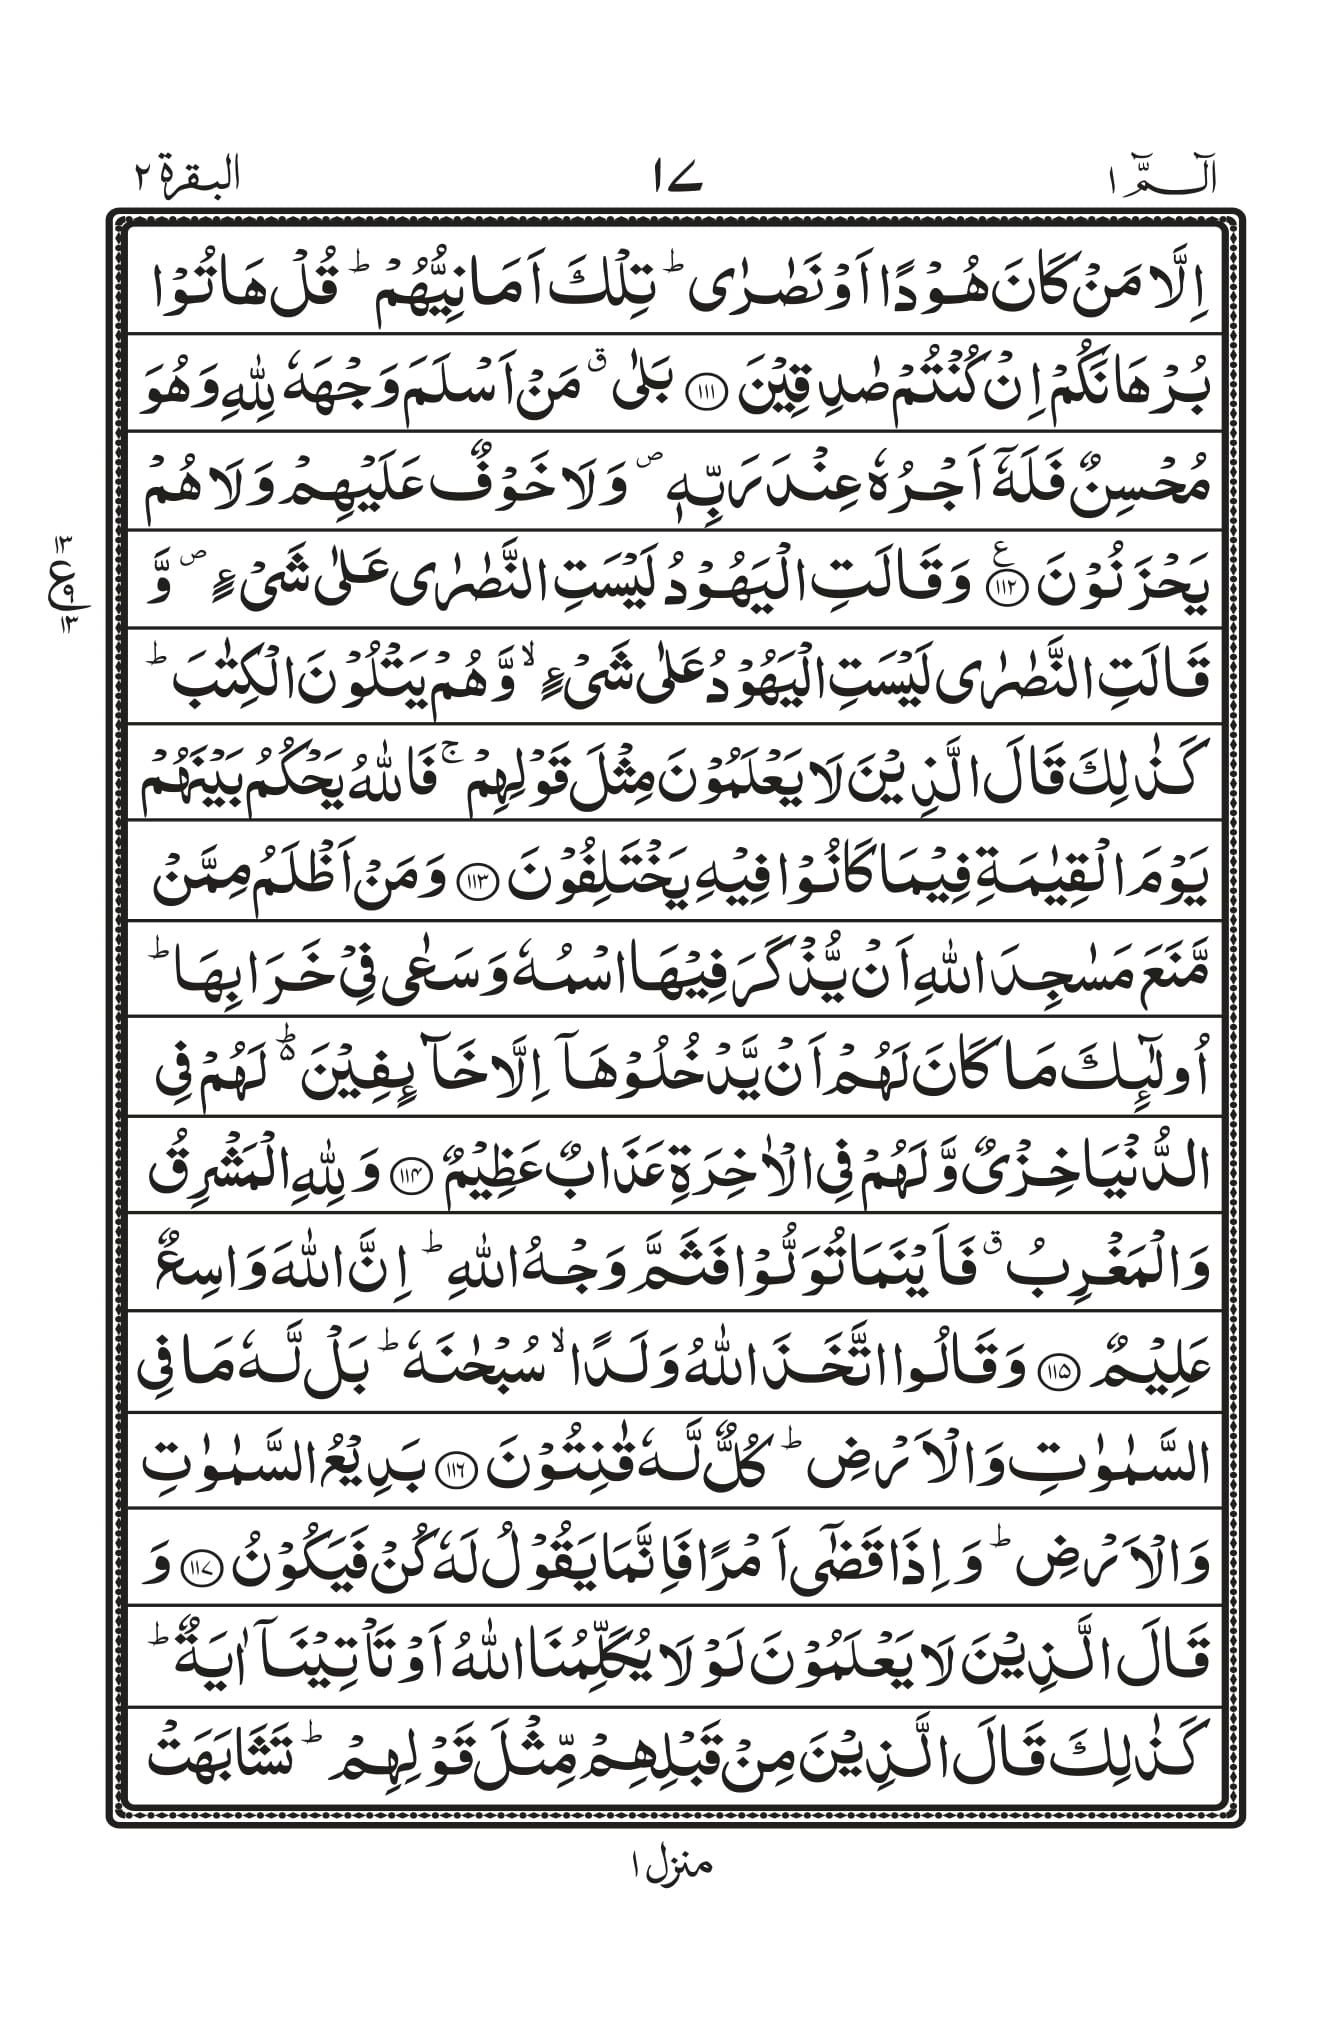 الٓـمّٓ ١
١٧
البقرة ٢
اِلَّا مَنْ كَانَ هُوْدًا اَوْ نَصٰرٰى ؕ تِلْكَ اَمَانِيُّهُمْ ؕ قُلْ هَاتُوْا
بُرْهَانَكُمْ اِنْ كُنْتُمْ صٰدِقِيْنَ ﴿۱۱۱﴾ بَلٰى ۗ مَنْ اَسْلَمَ وَجْهَهٗ لِلّٰهِ وَهُوَ
مُحْسِنٌ فَلَهٗۤ اَجْرُهٗ عِنْدَ رَبِّهٖ ۪ وَلَا خَوْفٌ عَلَيْهِمْ وَلَا هُمْ
يَحْزَنُوْنَ ﴿۱۱۲﴾ ع وَقَالَتِ الْيَهُوْدُ لَيْسَتِ النَّصٰرٰى عَلٰى شَىْءٍ ۪ وَّ
١٣
ع
٩
١٣
قَالَتِ النَّصٰرٰى لَيْسَتِ الْيَهُوْدُ عَلٰى شَىْءٍ ۙ وَّهُمْ يَتْلُوْنَ الْكِتٰبَ ؕ
كَذٰلِكَ قَالَ الَّذِيْنَ لَا يَعْلَمُوْنَ مِثْلَ قَوْلِهِمْ ۚ فَاللّٰهُ يَحْكُمُ بَيْنَهُمْ
يَوْمَ الْقِيٰمَةِ فِيْمَا كَانُوْا فِيْهِ يَخْتَلِفُوْنَ ﴿۱۱۳﴾ وَمَنْ اَظْلَمُ مِمَّنْ
مَّنَعَ مَسٰجِدَ اللّٰهِ اَنْ يُّذْكَرَ فِيْهَا اسْمُهٗ وَسَعٰى فِيْ خَرَابِهَا ؕ
اُولٰٓئِكَ مَا كَانَ لَهُمْ اَنْ يَّدْخُلُوْهَاۤ اِلَّا خَآئِفِيْنَ ۬ؕ لَهُمْ فِى
الدُّنْيَا خِزْىٌ وَّلَهُمْ فِى الْاٰخِرَةِ عَذَابٌ عَظِيْمٌ ﴿۱۱۴﴾ وَلِلّٰهِ الْمَشْرِقُ
وَالْمَغْرِبُ ۗ فَاَيْنَمَا تُوَلُّوْا فَثَمَّ وَجْهُ اللّٰهِ ؕ اِنَّ اللّٰهَ وَاسِعٌ
عَلِيْمٌ ﴿۱۱۵﴾ وَقَالُوا اتَّخَذَ اللّٰهُ وَلَدًا ۙ سُبْحٰنَهٗ ؕ بَلْ لَّهٗ مَا فِى
السَّمٰوٰتِ وَالْاَرْضِ ؕ كُلٌّ لَّهٗ قٰنِتُوْنَ ﴿۱۱۶﴾ بَدِيْعُ السَّمٰوٰتِ
وَالْاَرْضِ ؕ وَاِذَا قَضٰٓى اَمْرًا فَاِنَّمَا يَقُوْلُ لَهٗ كُنْ فَيَكُوْنُ ﴿۱۱۷﴾ وَ
قَالَ الَّذِيْنَ لَا يَعْلَمُوْنَ لَوْلَا يُكَلِّمُنَا اللّٰهُ اَوْ تَاْتِيْنَاۤ اٰيَةٌ ؕ
كَذٰلِكَ قَالَ الَّذِيْنَ مِنْ قَبْلِهِمْ مِّثْلَ قَوْلِهِمْ ؕ تَشَابَهَتْ
منزل ١